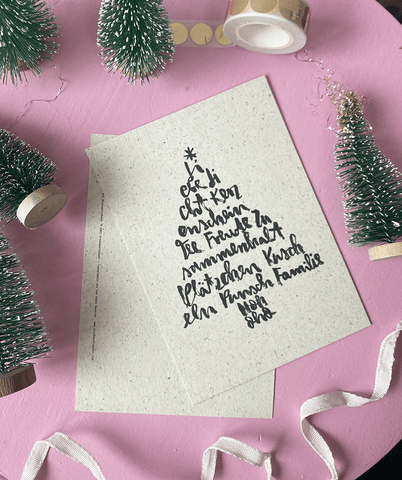 Li
ebe Li
cht Kerz
enschein
Tee Freude Zu
sammenhalt
Plätzchen Kusch
eln Punsch Familie
Hoh
oho